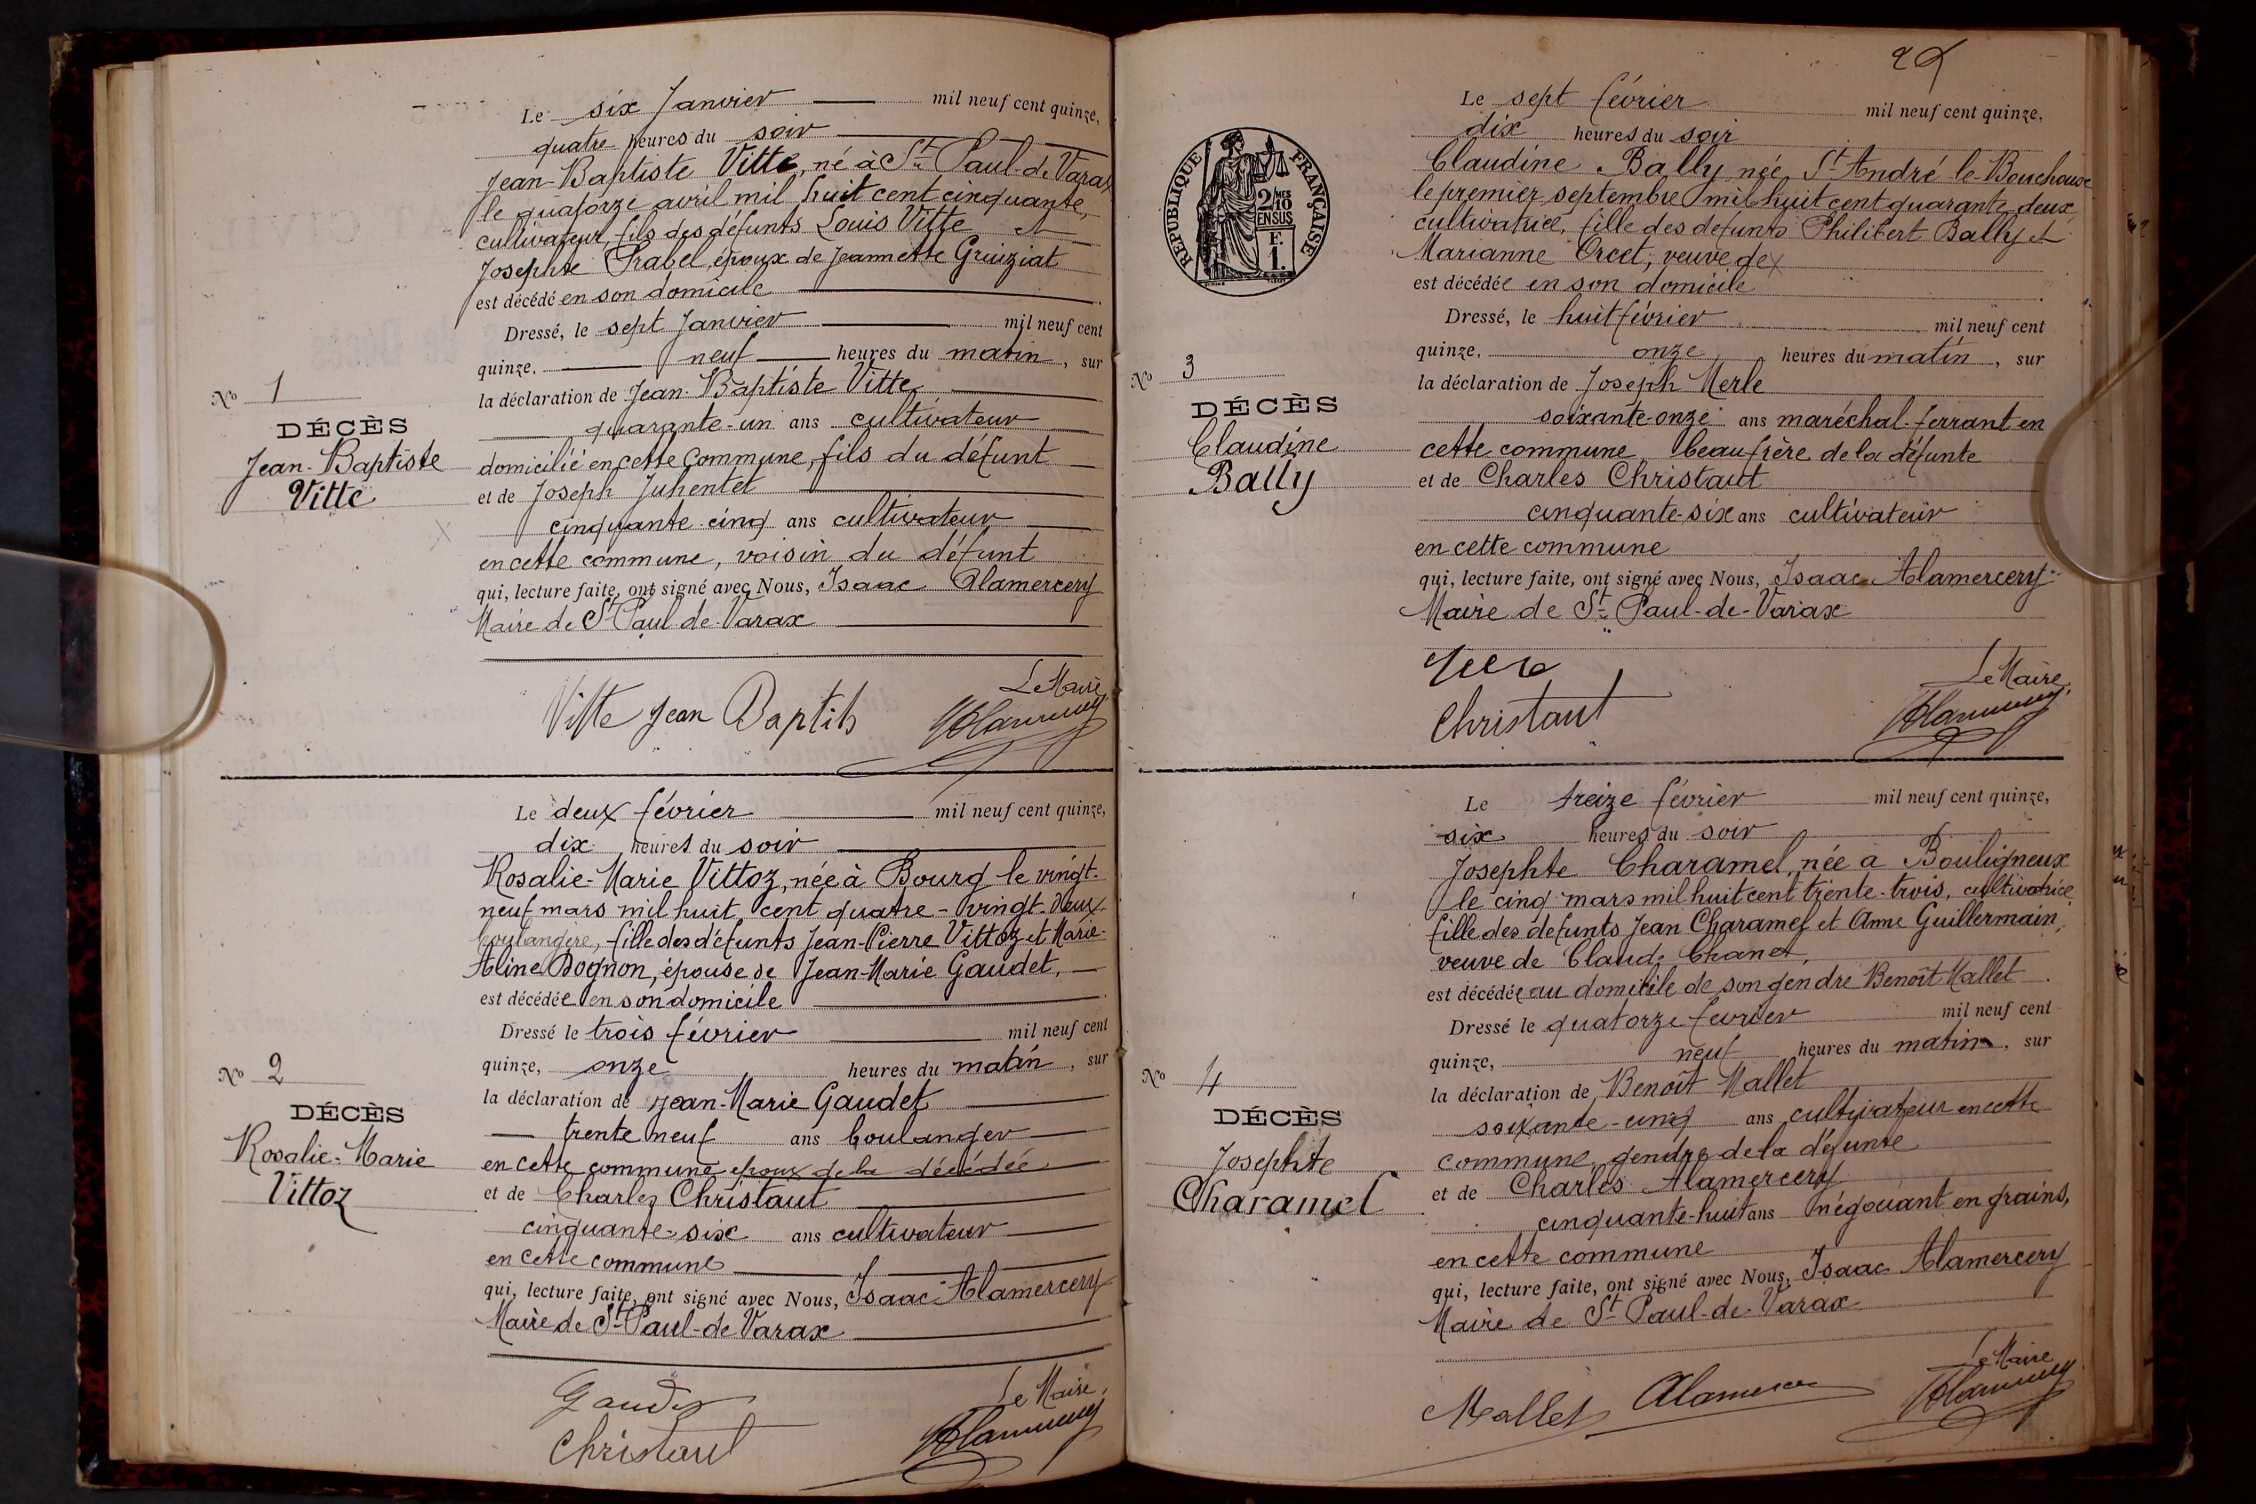 Le six Janvier mil neuf cent quinze,
quatre heures du soir
Jean-Baptiste Vitte, né à St Paul-de-Varax
le quatorze avril mil huit cent cinquante,
cultivateur, fils des défunts Louis Vitte et
Josephte Prabel, époux de Jeannette Gruiziat
est décédé en son domicile
Dressé, le sept Janvier mil neuf cent
quinze, neuf heures du matin, sur
la déclaration de Jean-Baptiste Vitte
quarante-un ans cultivateur
domicilié en cette Commune, fils du défunt
et de Joseph Juhentet
cinquante-cinq ans cultivateur
en cette commune, voisin du défunt
qui, lecture faite, ont signé avec Nous, Isaac Alamercery
Maire de St Paul-de-Varax
No 1
DÉCÈS
Jean-Baptiste
Vitte
Le Maire
Vitte Jean Baptits
Le deux février mil neuf cent quinze,
dix heures du soir
Rosalie-Marie Vittoz, née à Bourg le vingt-
neuf mars mil huit cent quatre-vingt-deux
boulangère, fille des défunts Jean-Pierre Vittoz et Marie-
Aline Dognon, épouse de Jean-Marie Gaudet,
est décédée en son domicile
Dressé le trois février mil neuf cent
quinze, onze heures du matin, sur
la déclaration de Jean-Marie Gaudet
trente neuf ans boulanger
en cette commune époux de la décédée
et de Charles Christaut
cinquante-six ans cultivateur
en cette commune
qui, lecture faite, ont signé avec Nous, Isaac Alamercery
Maire de St Paul-de-Varax
No 2
DÉCÈS
Rosalie-Marie
Vittoz
Le Maire,
Gaudet
Christaut
RÉPUBLIQUE FRANÇAISE
2/10 MES
EN SUS
F.
1.
Le sept février mil neuf cent quinze,
dix heures du soir
Claudine Bally née, St André-le-Bouchoux
le premier septembre mil huit cent quarante deux,
cultivatrice, fille des défunts Philibert Bally et
Marianne Orcet, veuve de x
est décédée en son domicile
Dressé, le huit février mil neuf cent
quinze, onze heures du matin, sur
la déclaration de Joseph Merle
soixante-onze ans maréchal-ferrant en
cette commune, beaufrère de la défunte
et de Charles Christaut
cinquante-six ans cultivateur
en cette commune
qui, lecture faite, ont signé avec Nous, Isaac Alamercery
Maire de St Paul-de-Varax
No 3
DÉCÈS
Claudine
Bally
Le Maire,
Christaut
Le treize février mil neuf cent quinze,
six heures du soir
Josephte Charamel, née à Bouligneux
le cinq mars mil huit cent trente-trois, cultivatrice
fille des défunts Jean Charamel et Anne Guillermain,
veuve de Claude Chanet,
est décédée au domicile de son gendre Benoît Mallet
Dressé le quatorze février mil neuf cent
quinze, neuf heures du matin, sur
la déclaration de Benoît Mallet
soixante-cinq ans cultivateur en cette
commune, gendre de la défunte
et de Charles Alamercery
cinquante-huit ans négociant en grains,
en cette commune
qui, lecture faite, ont signé avec Nous, Isaac Alamercery
Maire de St Paul-de-Varax
No 4
DÉCÈS
Josephte
Charamel
Le Maire
Mallet